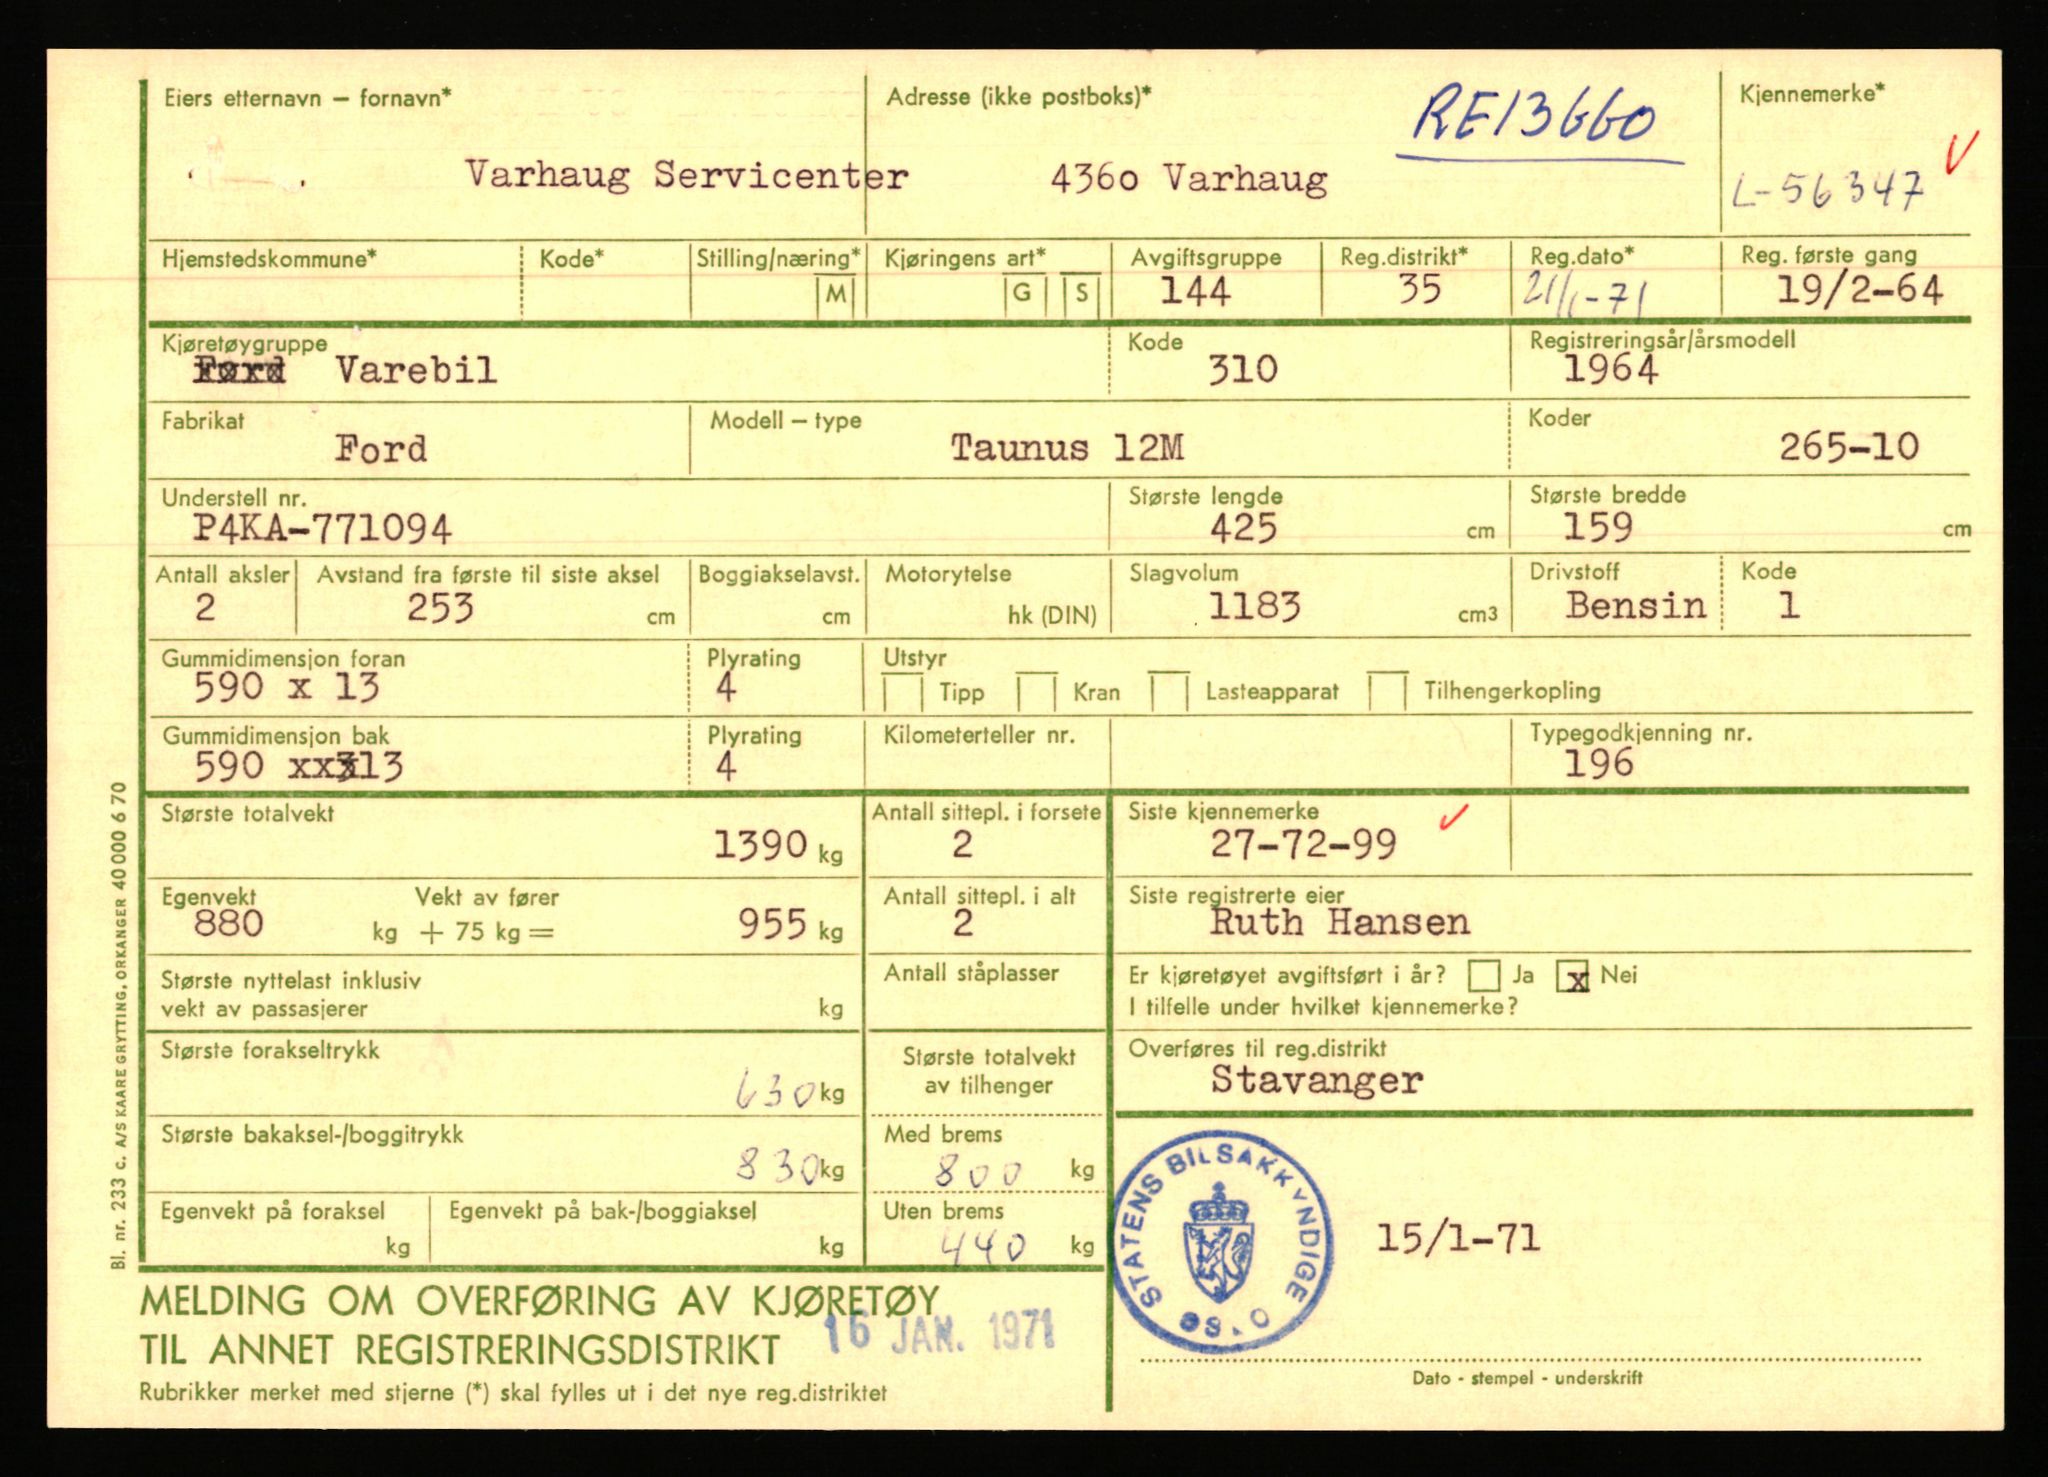 Eiers etternavn – fornavn*
Adresse (ikke postboks)*
RE13660
Kjennemerke*
Varhaug Servicenter
436o Varhaug
L-56347
Hjemstedskommune*
Kode*
Stilling/næring*
M
Kjøringens art*
G
S
Avgiftsgruppe
144
Reg.distrikt*
35
Reg.dato*
21/1-71
Reg. første gang
19/2-64
Kjøretøygruppe
Varebil
Kode
310
Registreringsår/årsmodell
1964
Fabrikat
Ford
Modell – type
Taunus 12M
Koder
265-10
Understell nr.
P4KA-771094
Største lengde
425 cm
Største bredde
159 cm
Antall aksler
2
Avstand fra første til siste aksel
253 cm
Boggiakselavst.
cm
Motorytelse
hk (DIN)
Slagvolum
1183 cm3
Drivstoff
Bensin
Kode
1
Gummidimensjon foran
590 x 13
Plyrating
4
Utstyr
Tipp
Kran
Lasteapparat
Tilhengerkopling
Gummidimensjon bak
590 xxx13
Plyrating
4
Kilometerteller nr.
Typegodkjenning nr.
196
Største totalvekt
1390 kg
Antall sittepl. i forsete
2
Siste kjennemerke
27-72-99
Egenvekt
880 kg
Vekt av fører
+ 75 kg =
955 kg
Antall sittepl. i alt
2
Siste registrerte eier
Ruth Hansen
Største nyttelast inklusiv
vekt av passasjerer
kg
Antall ståplasser
Er kjøretøyet avgiftsført i år? Ja x Nei
I tilfelle under hvilket kjennemerke?
Største forakseltrykk
630 kg
Største totalvekt
av tilhenger
Overføres til reg.distrikt
Stavanger
Største bakaksel-/boggitrykk
830 kg
Med brems
800 kg
Egenvekt på foraksel
kg
Egenvekt på bak-/boggiaksel
kg
Uten brems
440 kg
STATENS BILSAKKYNDIGE
OSLO
15/1-71
MELDING OM OVERFØRING AV KJØRETØY
TIL ANNET REGISTRERINGSDISTRIKT
16 JAN. 1971
Rubrikker merket med stjerne (*) skal fylles ut i det nye reg.distriktet
Dato - stempel - underskrift
Bl. nr. 233 c. A/S KAARE GRYTTING, ORKANGER 40 000 6 70